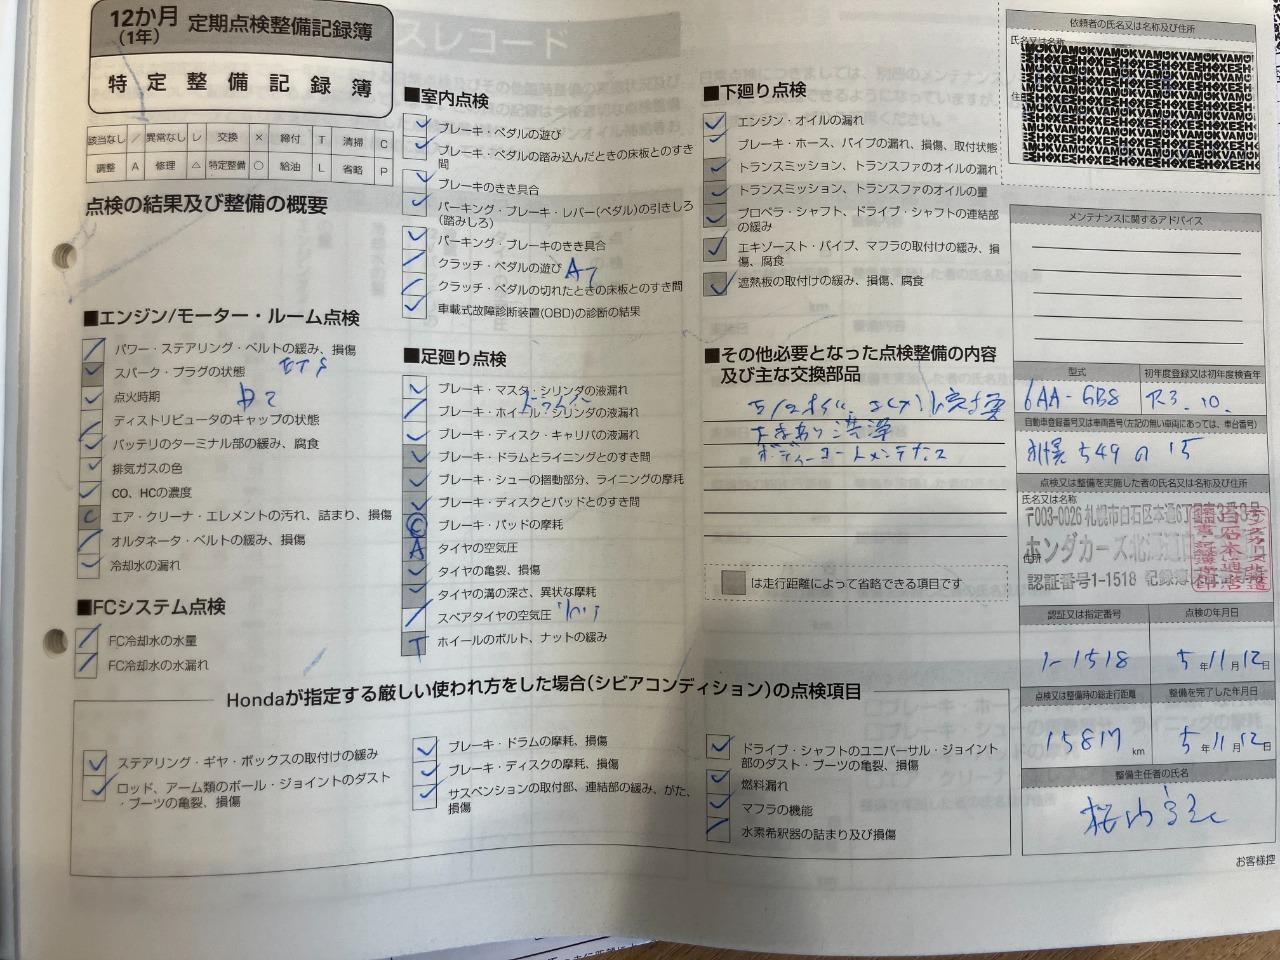 12か月
(1年)
定期点検整備記録簿
特定整備記録簿
該当なし / 異常なし レ 交換 × 締付 T 清掃 C
調整 A 修理 △ 特定整備 ○ 給油 L 省略 P
点検の結果及び整備の概要
■エンジン/モーター・ルーム点検
パワー・ステアリング・ベルトの緩み、損傷
スパーク・プラグの状態
点火時期
ディストリビュータのキャップの状態
バッテリのターミナル部の緩み、腐食
排気ガスの色
CO、HCの濃度
C エア・クリーナ・エレメントの汚れ、詰まり、損傷
オルタネータ・ベルトの緩み、損傷
冷却水の漏れ
■FCシステム点検
FC冷却水の水量
FC冷却水の水漏れ
■室内点検
ブレーキ・ペダルの遊び
ブレーキ・ペダルの踏み込んだときの床板とのすき間
ブレーキのきき具合
パーキング・ブレーキ・レバー(ペダル)の引きしろ
(踏みしろ)
パーキング・ブレーキのきき具合
クラッチ・ペダルの遊び
クラッチ・ペダルの切れたときの床板とのすき間
車載式故障診断装置(OBD)の診断の結果
■足廻り点検
ブレーキ・マスタ・シリンダの液漏れ
ブレーキ・ホイール・シリンダの液漏れ
ブレーキ・ディスク・キャリパの液漏れ
ブレーキ・ドラムとライニングとのすき間
ブレーキ・シューの摺動部分、ライニングの摩耗
ブレーキ・ディスクとパッドとのすき間
ブレーキ・パッドの摩耗
A タイヤの空気圧
タイヤの亀裂、損傷
タイヤの溝の深さ、異状な摩耗
スペアタイヤの空気圧
T ホイールのボルト、ナットの緩み
■下廻り点検
エンジン・オイルの漏れ
ブレーキ・ホース、パイプの漏れ、損傷、取付状態
トランスミッション、トランスファのオイルの漏れ
トランスミッション、トランスファのオイルの量
プロペラ・シャフト、ドライブ・シャフトの連結部
の緩み
エキゾースト・パイプ、マフラの取付けの緩み、損
傷、腐食
遮熱板の取付けの緩み、損傷、腐食
■その他必要となった点検整備の内容
及び主な交換部品
下まわり洗浄
ボディーコートメンテナンス
は走行距離によって省略できる項目です
Hondaが指定する厳しい使われ方をした場合(シビアコンディション)の点検項目
ステアリング・ギヤ・ボックスの取付けの緩み
ロッド、アーム類のボール・ジョイントのダスト
・ブーツの亀裂、損傷
ブレーキ・ドラムの摩耗、損傷
ブレーキ・ディスクの摩耗、損傷
サスペンションの取付部、連結部の緩み、がた、
損傷
ドライブ・シャフトのユニバーサル・ジョイント
部のダスト・ブーツの亀裂、損傷
燃料漏れ
マフラの機能
水素希釈器の詰まり及び損傷
依頼者の氏名又は名称及び住所
氏名又は名称
メンテナンスに関するアドバイス
型式 初年度登録又は初年度検査年
6AA-GB8 R3.10.
自動車登録番号又は車両番号(左記の無い車両にあっては、車台番号)
札幌 549 の 15
点検又は整備を実施した者の氏名又は名称及び住所
氏名又は名称
〒003-0026 札幌市白石区本通6丁目
ホンダカーズ北海道
住所
認証番号1-1518
認証又は指定番号 点検の年月日
1-1518 5年11月12日
点検又は整備時の総走行距離 整備を完了した年月日
15817 km 5年11月12日
整備主任者の氏名
お客様控